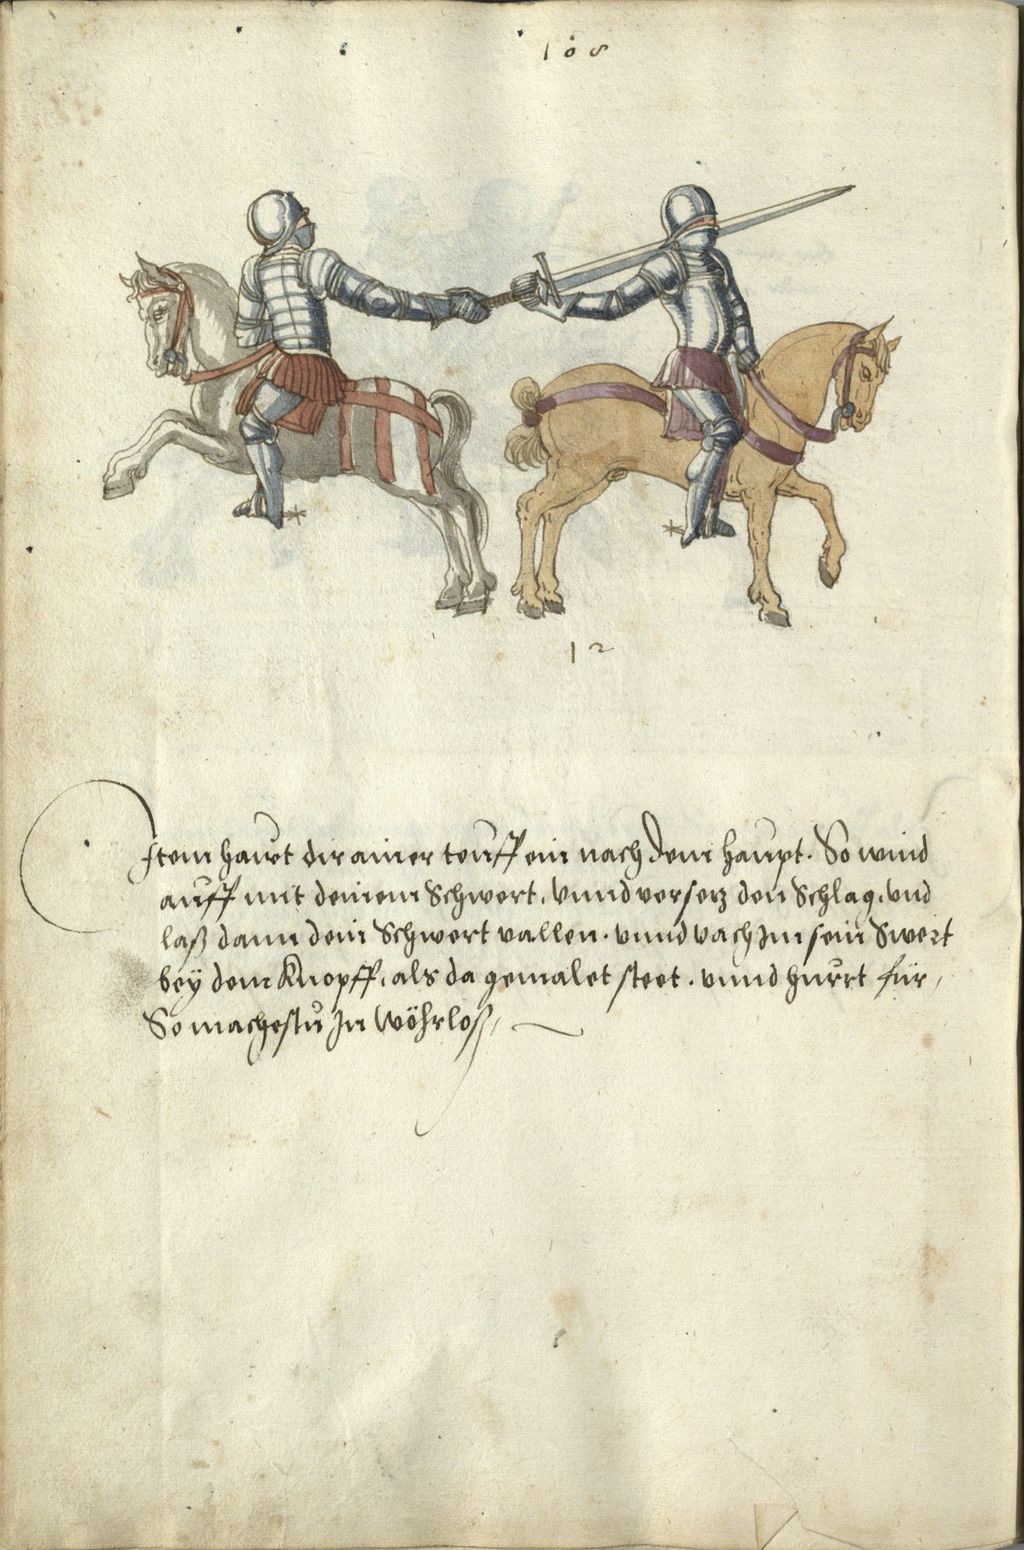 108
12
Item hawt dir ainer teüff ein nach dem haüpt. So wind
aüff mit deinem Schwert, vnnd versetz den Schlag, vnd
laß dann dein Schwert vallen. vnnd vach im sein Swert
beÿ dem Knopff, als da gemalet steet. vnnd hürt für,
So machestü In Wöhrloß,